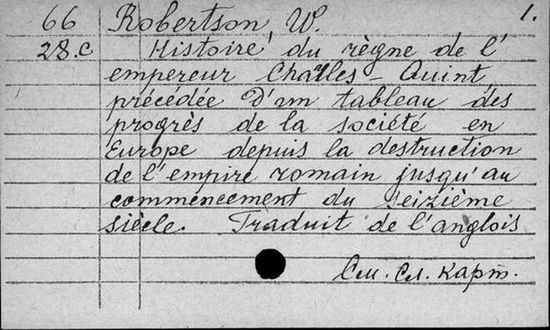 66 Robertson, W. 1.
28.c Histoire du règne de l'
empereur Charles-Quint,
précédée d'un tableau des
progrès de la société en
Europe depuis la destruction
de l'empire romain jusqu'au
commencement du seizième
siècle. Traduit de l'anglois
См. сл. карт.